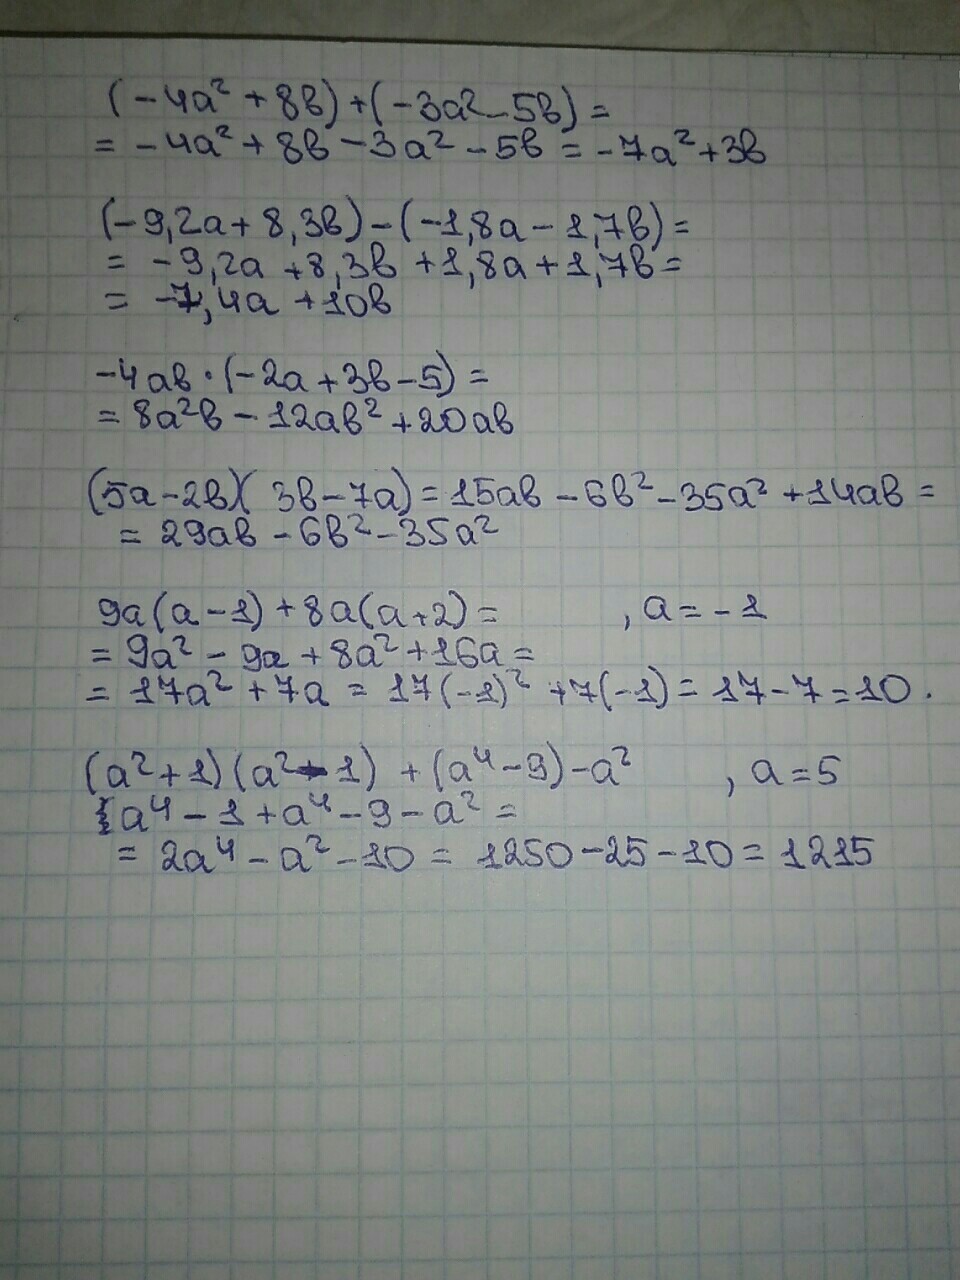 (-4a² + 8b) + (-3a² - 5b) =
= -4a² + 8b - 3a² - 5b = -7a² + 3b
(-9,2a + 8,3b) - (-1,8a - 1,7b) =
= -9,2a + 8,3b + 1,8a + 1,7b =
= -7,4a + 10b
-4ab · (-2a + 3b - 5) =
= 8a²b - 12ab² + 20ab
(5a - 2b)(3b - 7a) = 15ab - 6b² - 35a² + 14ab =
= 29ab - 6b² - 35a²
9a(a - 1) + 8a(a + 2) = , a = -1
= 9a² - 9a + 8a² + 16a =
= 17a² + 7a = 17(-1)² + 7(-1) = 17 - 7 = 10.
(a² + 1)(a² - 1) + (a⁴ - 9) - a² , a = 5
a⁴ - 1 + a⁴ - 9 - a² =
= 2a⁴ - a² - 10 = 1250 - 25 - 10 = 1215